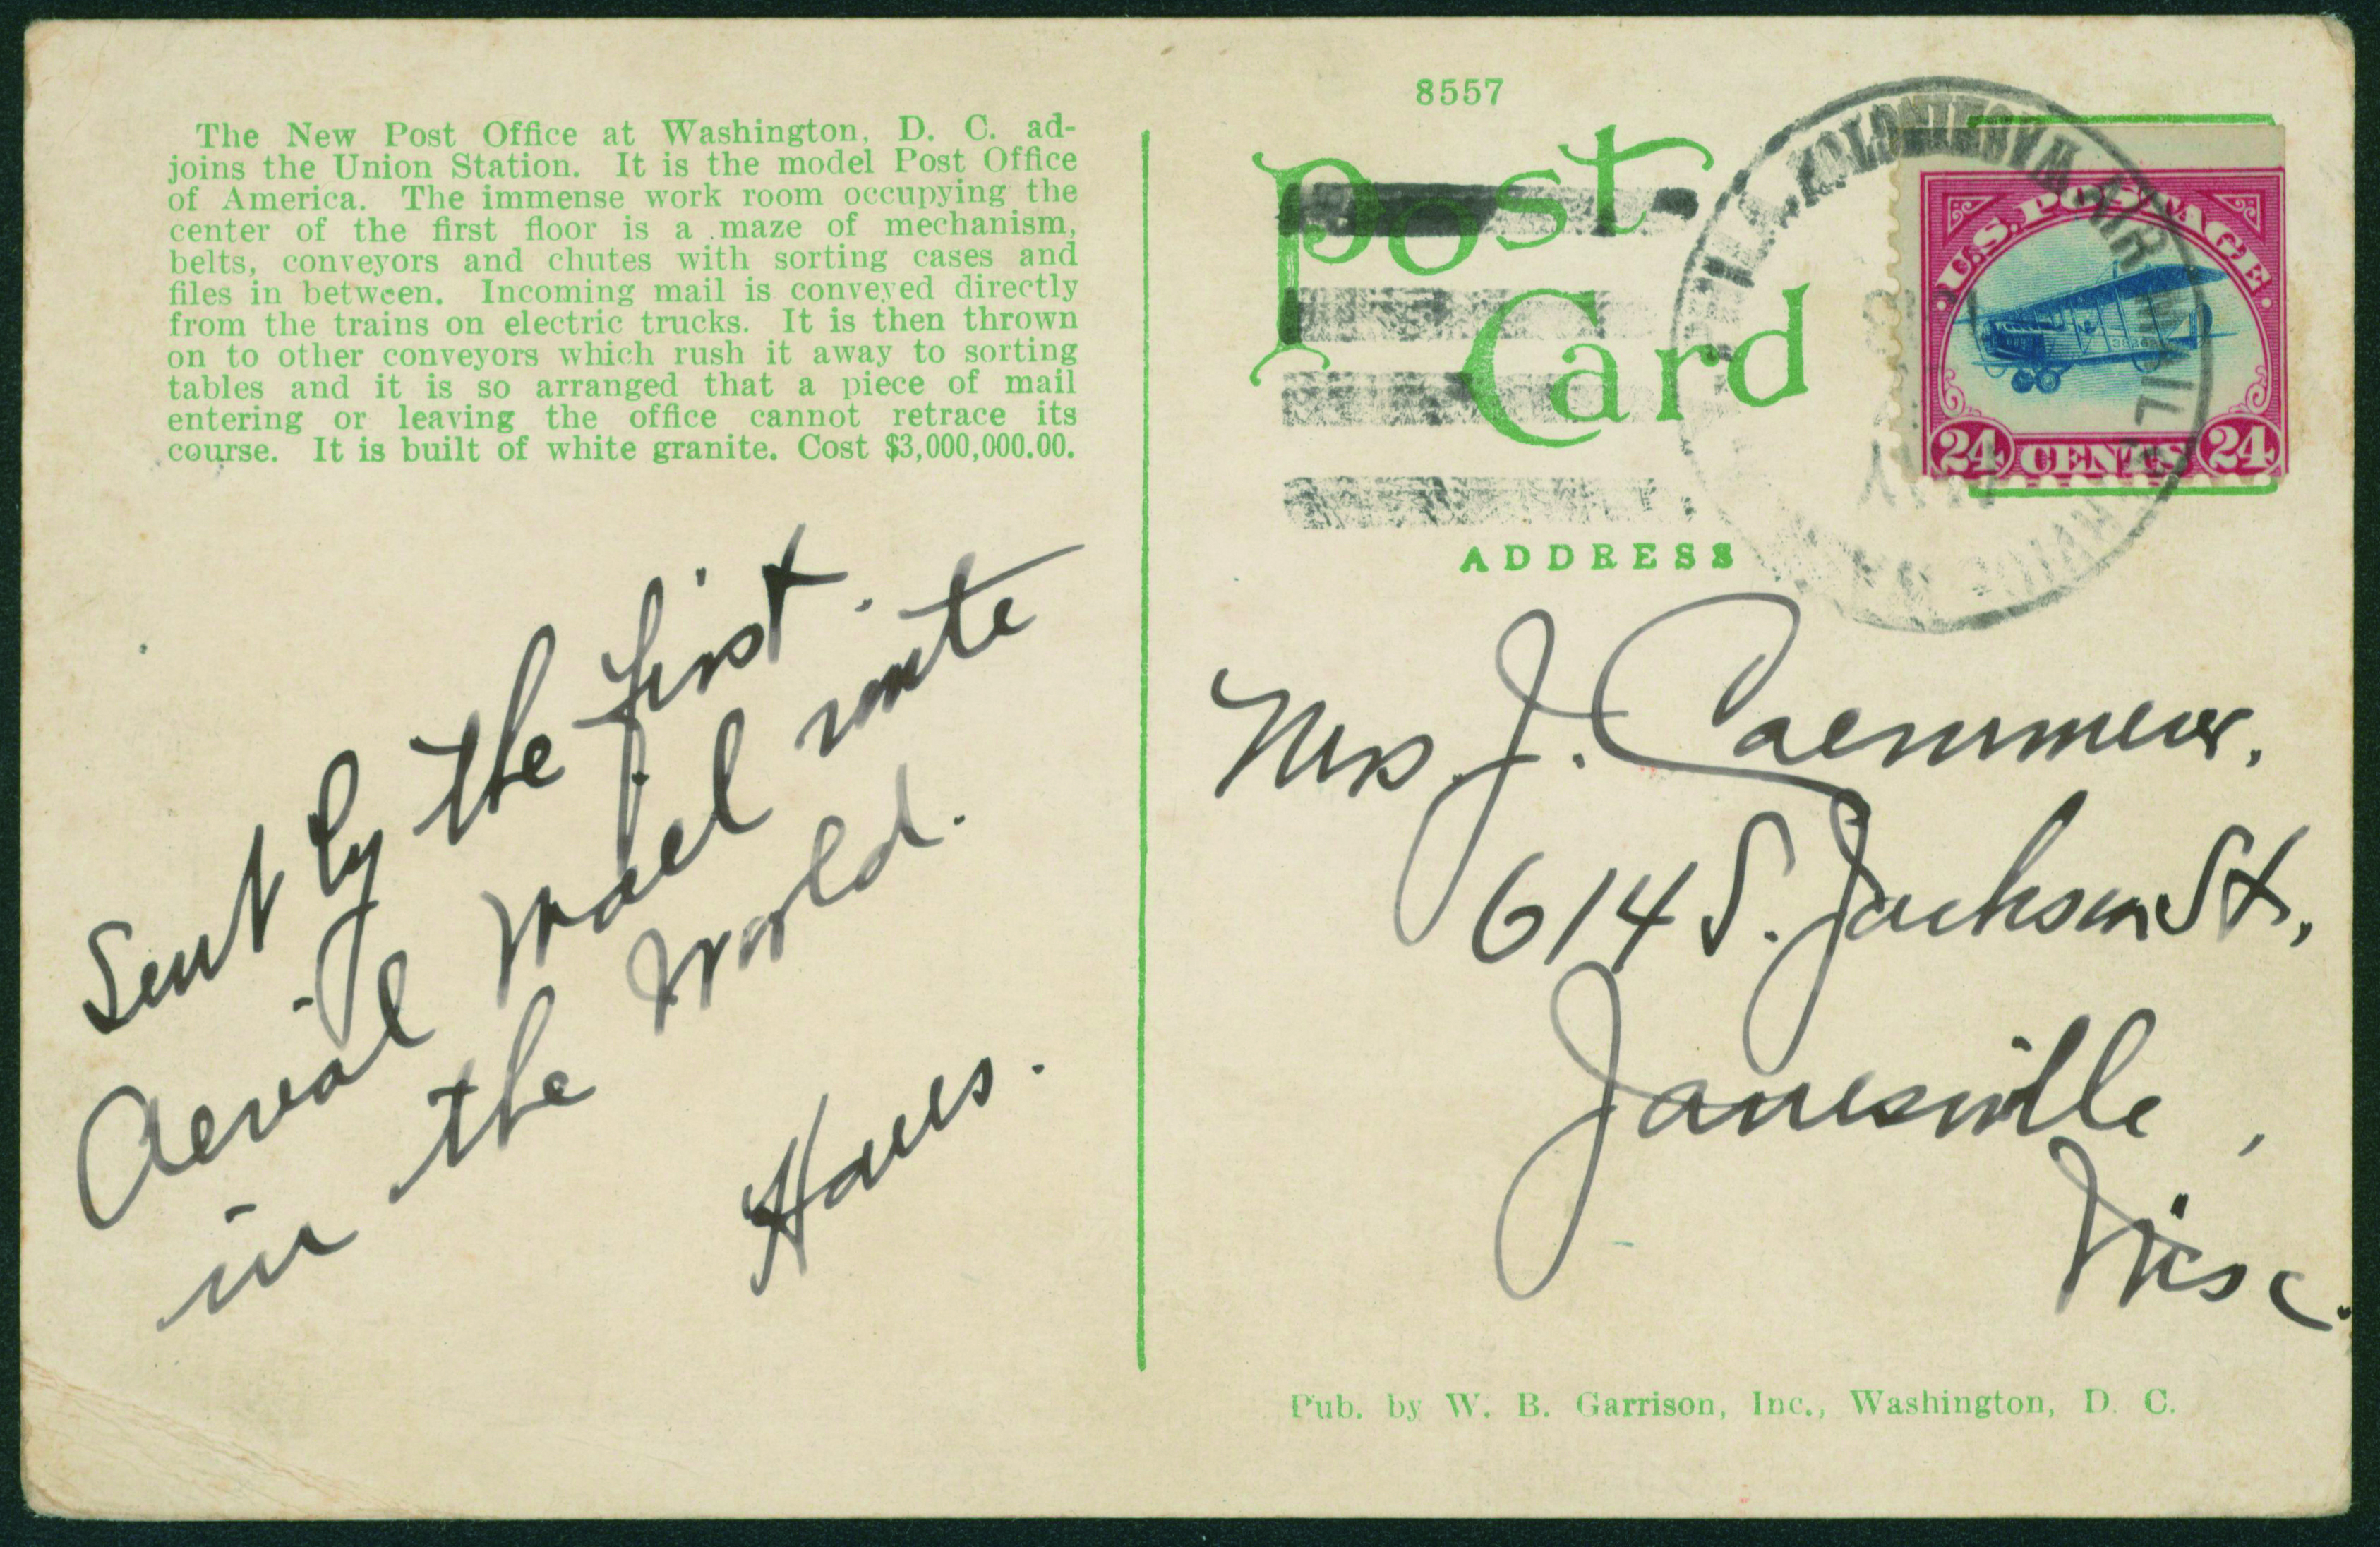 The New Post Office at Washington, D. C. ad-
joins the Union Station. It is the model Post Office
of America. The immense work room occupying the
center of the first floor is a maze of mechanism,
belts, conveyors and chutes with sorting cases and
files in between. Incoming mail is conveyed directly
from the trains on electric trucks. It is then thrown
on to other conveyors which rush it away to sorting
tables and it is so arranged that a piece of mail
entering or leaving the office cannot retrace its
course. It is built of white granite. Cost $3,000,000.00.
Sent by the first.
Aerial Mail route
in the World.
8557
Post
Card
AIR MAIL
U.S. POSTAGE
38262
24 CENTS 24
ADDRESS
Mrs J. Caemmerer.
614 S. Jackson St.,
Janesville,
Wisc.
Pub. by W. B. Garrison, Inc., Washington, D. C.